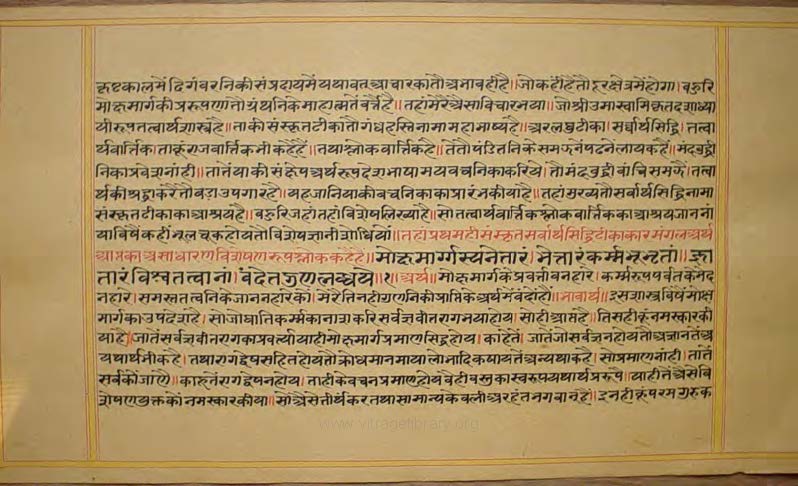 कृष्टकालमें दिगंबरनिकी संप्रदायमें यथावत् आचारका तौ अभावही है॥ जो कहीं है तौ दूरक्षेत्रमें होगा। बहुरि
मोक्षमार्गकी प्ररूपणा तो ग्रंथनिके माहात्मतें वर्ते है॥ तहां मेरे ऐसा विचार भया॥ जो श्री उमास्वामिकृत दशाध्या
यीरूप तत्वार्थशास्त्र है॥ ताकी संस्कृत टीका तौ गंधहस्ति नामा महाभाष्य है॥ अर लघु टीका। सर्वार्थसिद्धि। तत्वा
र्थवार्तिक। ताकूं राजवार्तिक भी कहे हैं॥ तथा श्लोकवार्तिक है॥ ते तौ पंडितनिके समझने पढने लायक हैं॥ मंदबुद्धी
निका प्रवेश नांही॥ तातें याकी संक्षेप अर्थरूप देशभाषामय वचनिका करिये तौ मंदबुद्धी वांचि समझै॥ तत्वा
र्थकी श्रद्धा करै तौ बडा उपगार है॥ यह जानि याकी वचनिकाका प्रारंभ कीया है॥ तहां मुख्य तौ सर्वार्थसिद्धि नामा
संस्कृत टीकाका आश्रय है॥ बहुरि जहां तहां विशेष लिख्या है॥ सो तत्वार्थवार्तिक श्लोकवार्तिकका आश्रय जाननां
याविषै कहीं भूलचूक होय तौ विशेष ज्ञानी शोधियो॥ तहां प्रथमही संस्कृत सर्वार्थसिद्धि टीकाकार मंगल अर्थ
आप्तका असाधारण विशेषणरूप श्लोक कहै हैं॥ मोक्षमार्गस्य नेतारं भेत्तारं कर्म्मभूभृतां॥ ज्ञा
तारं विश्वतत्वानां वंदे तद्गुणलब्धये॥१॥ अर्थ॥ मोक्षमार्गके प्रवर्तावनहारे। कर्म्मरूप पर्वतके भेद
नहारे। समस्त तत्वनिके जाननहारेकों। मैं तिनही गुणनिकी प्राप्तिके अर्थ मैं वंदों हों॥ भावार्थ॥ इस शास्त्रविषैं मोक्ष
मार्गका उपदेश है॥ सो जो घातिकर्म्मका नाश करि सर्वज्ञ वीतराग भया होय। सो ही आप्त है॥ तिसहीकूं नमस्कार की
या है॥ जातें सर्वज्ञ वीतरागका प्रवर्त्यायाही मोक्षमार्ग प्रमाणसिद्ध होय। काहेतें। जातें जो सर्वज्ञ न होय तौ अज्ञानतें अ
यथार्थ भी कहै। तथा रागद्वेष सहित होय तौ क्रोध मान माया लोभादिक यायतें अन्यथा कहै। सो प्रमाण नांही॥ तातें
सर्वकों जाणै॥ काहूतें रागद्वेष न होय। ताहीके वचन प्रमाण होय वैही वस्तुका स्वरूप यथार्थ प्ररूपै॥ याहीतें ऐसे वि
शेषणयुक्तकों नमस्कार कीया॥ सो ऐसे तीर्थंकर तथा सामान्यकेवली अरहंत भगवान हैं। इनहीकूं परमगुरु क
www.vitragelibrary.org